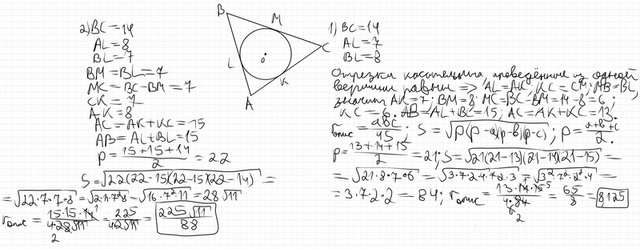 2) BC=14
AL=8
BL=7
BM=BL=7
MC=BC-BM=7
CK=7
AK=8
AC=AK+KC=15
AB=AL+BL=15
P=(15+15+14)/2=22
S=√(22(22-15)(22-15)(22-14))=
=√(22·7·7·8)=√(2·11·7²·8)=√(16·7²·11)=28√11
=225/(4·2√11)=225√11/88
B
M
C
L
O
K
A
1) BC=14
AL=7
BL=8
Отрезки касательных, проведённые из одной
вершины равны => AL=AK, KC=CM, MB=BL,
значит AK=7; BM=8; MC=BC-BM=14-8=6;
KC=6. AB=AL+BL=15; AC=AK+KC=13.
rопис=abc/4S; S=√(p(p-a)(p-b)(p-c)); p=(a+b+c)/2.
P=(13+14+15)/2=21; S=√(21(21-13)(21-14)(21-15))=
=√(21·8·7·6)=√(3·7·2·4·7·2·3)=√(3²·7²·2²·4)
=3·7·2·2=84; rопис=(13·14·15)/(4·84)=65/8=8,125